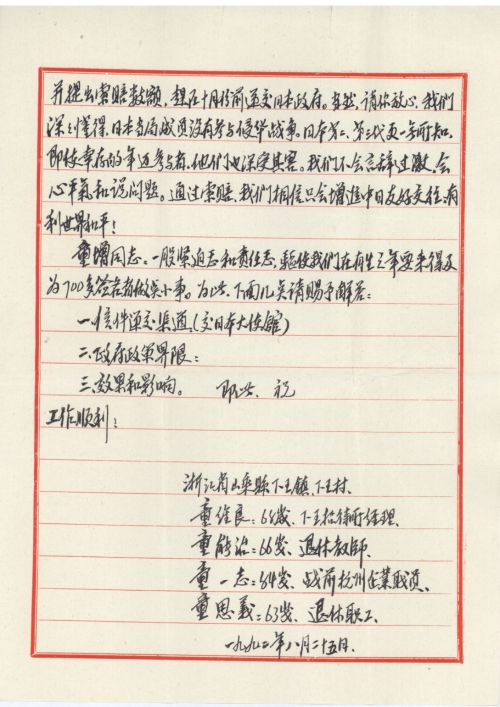 并提出索赔数额,想在十月份前递交日本政府。当然,请你放心,我们
深深懂得,日本当局成员没有参与侵华战争。日本第二、第三代更一无所知,
即使幸存的年迈参与者,他们也深受其害。我们不会言辞过激,会
心平气和说问题。通过索赔,我们相信只会增进中日友好交往,有
利世界和平!
童增同志。一股紧迫感和责任感,驱使我们在有生之年要来得及
为700多签名者做点小事。为此,下面几点请赐予解答:
一、信件递交渠道,(交日本大使馆)
二、政府政策界限:
三、效果和影响。 即此、祝
工作顺利!
浙江省 县下王镇、下王村。
童维良:68岁、下王招待所经理。
童能治:66岁、退休教师。
童一志:84岁、战前杭州企業職員。
童思義:63岁、退休职工。
一九九二年八月二十五日.